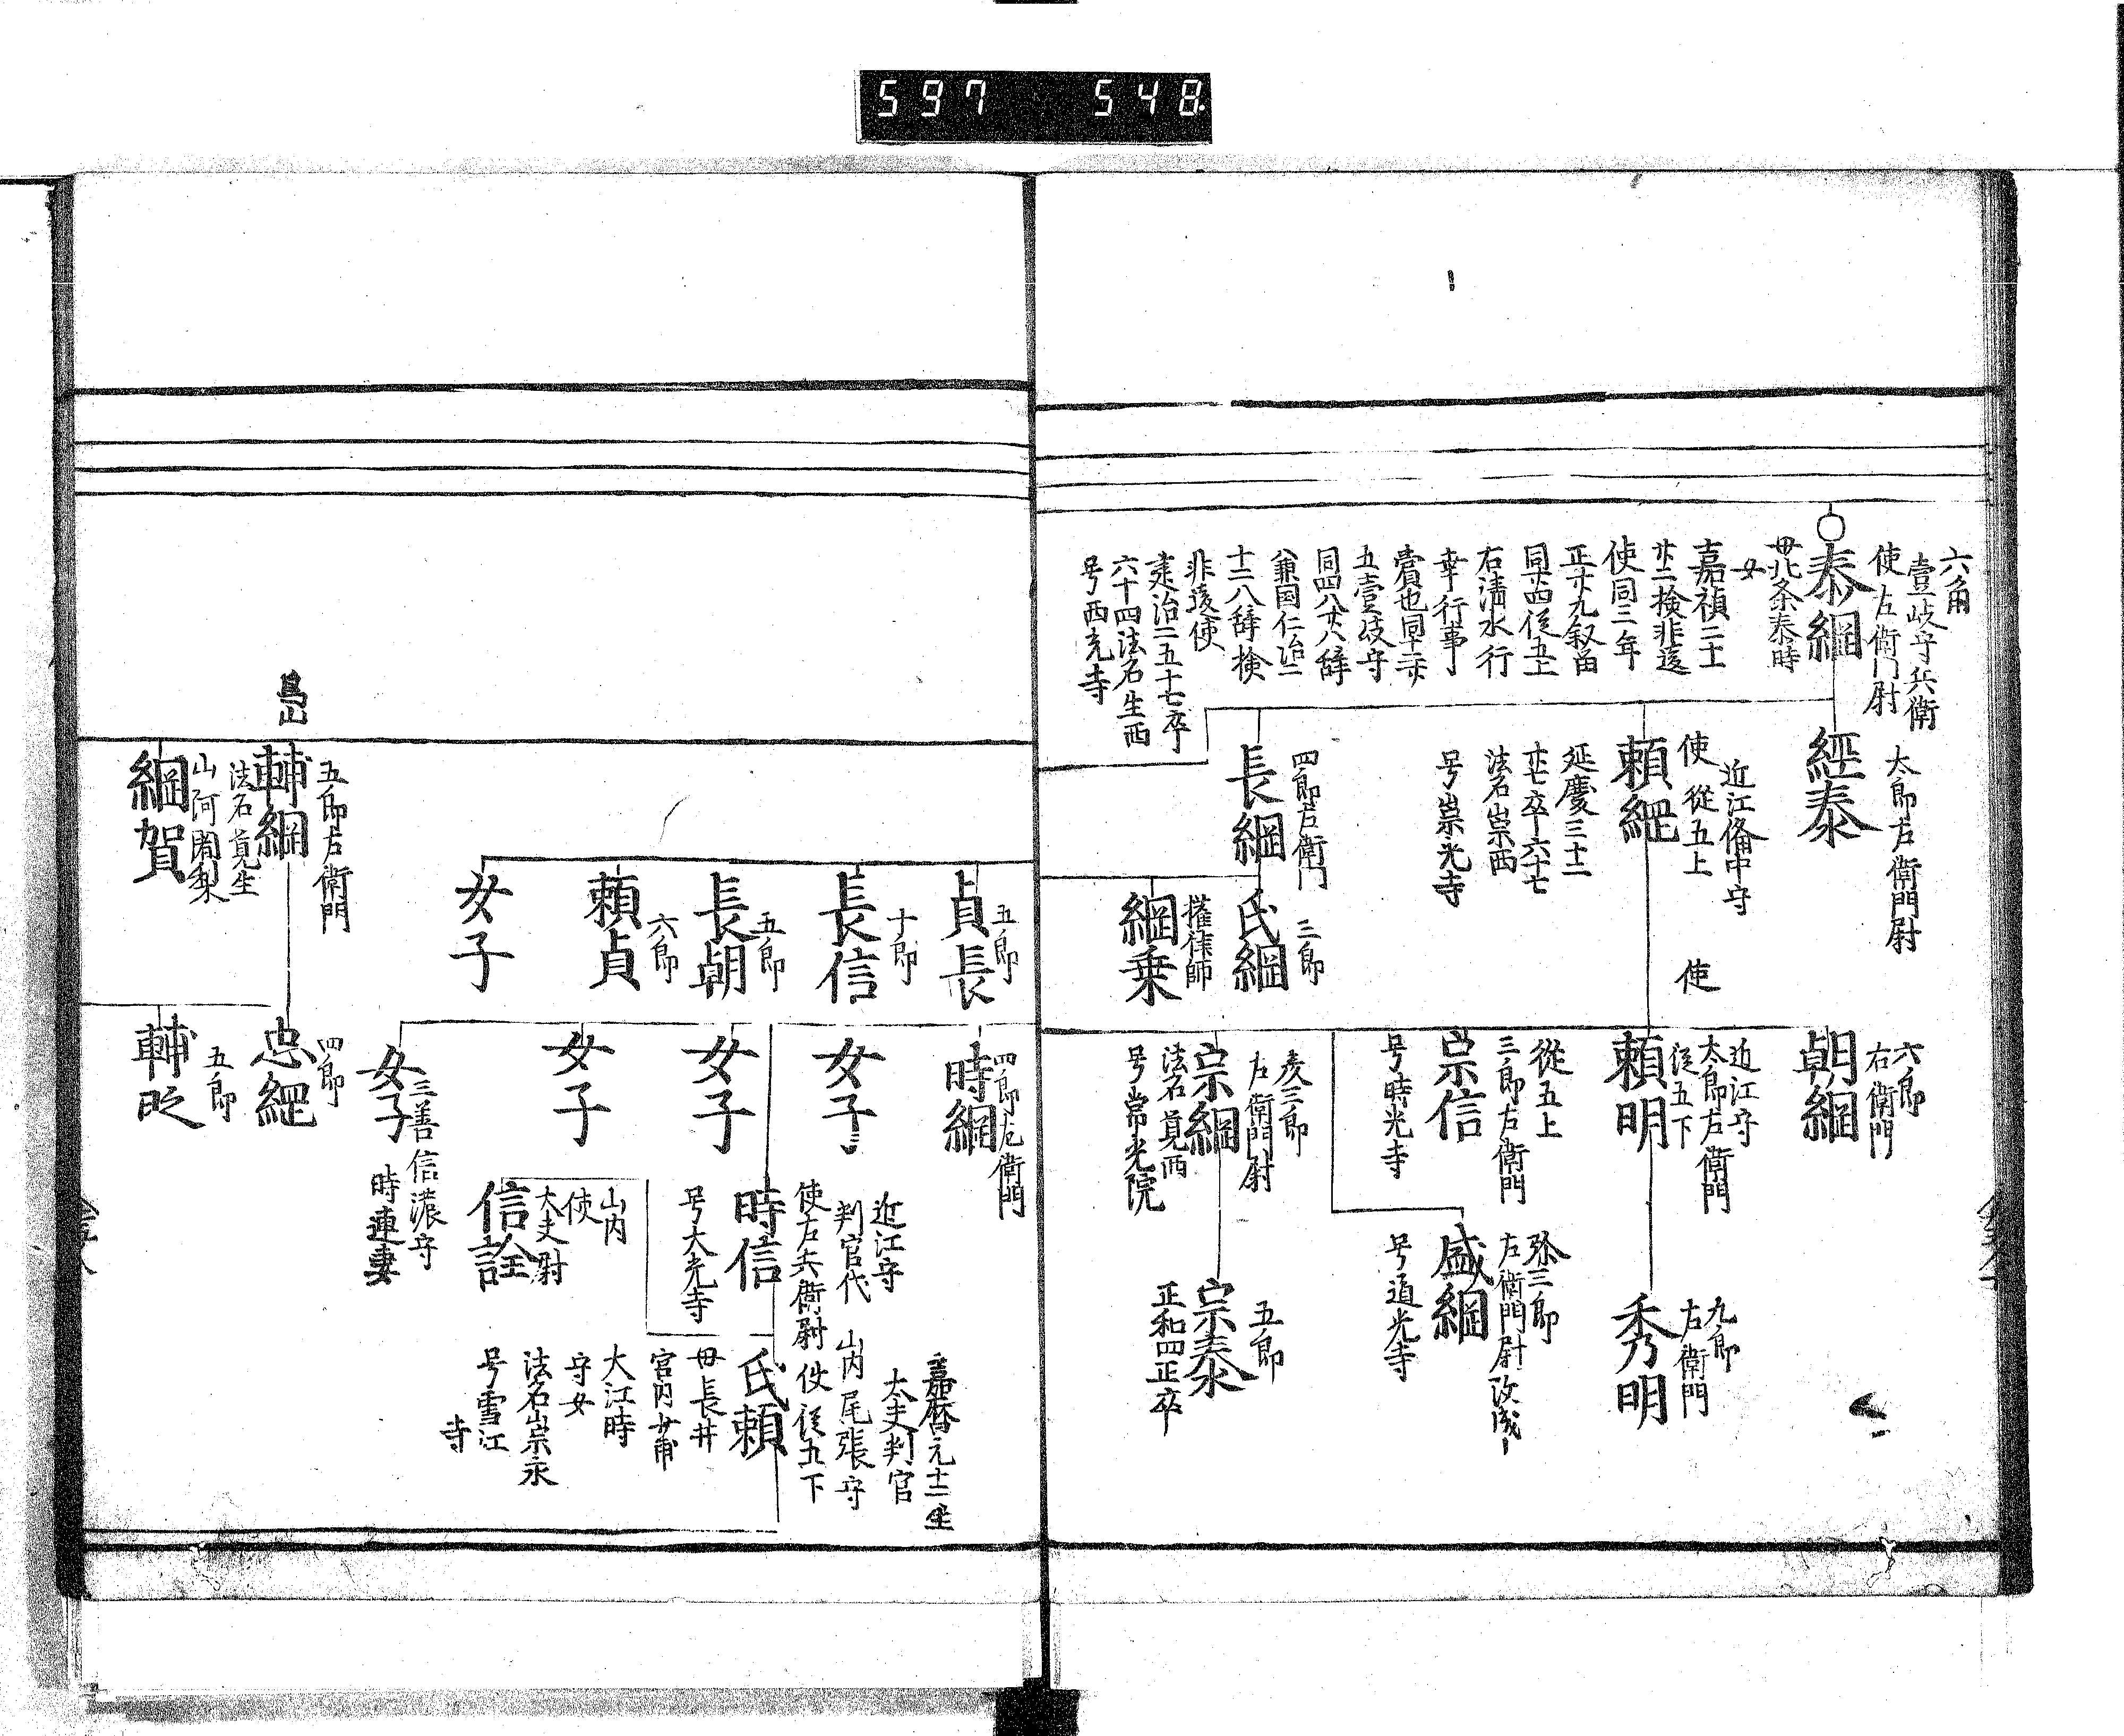 597 548
六角
壹岐守兵衛
使左衛門尉
泰綱
母北条泰時
女
嘉禎二十一
廿二検非違
使同三年
正廿九叙留
同廿四従五上
石清水行
幸行事
賞也同十二廿
五壹岐守
同四八廿八辞
兼国仁治二
十二八辞検
非違使
建治二五十七卒
六十四法名生西
号西光寺
太郎左衛門尉
經泰
近江備中守
使 従五上
頼綱
延慶三十二
廿七卒六十七
法名崇西
号崇光寺
四郎左衛門
長綱
三郎
氏綱
權律師
綱乗
六郎
右衛門
朝綱
使
近江守
太郎左衛門
従五下
頼明
九郎
右衛門
秀明
従五上
三郎左衛門
宗信
号時光寺
弥三郎
左衛門尉 改成
盛綱
号道光寺
孫三郎
左衛門尉
宗綱
法名覚西
号常光院
五郎
宗泰
正和四正卒
五郎
貞長
十郎
長信
五郎
長朝
六郎
頼貞
女子
四郎左衛門
時綱
女子
女子
女子
三善信濃守
時連妻
女子
近江守
判官代
使左兵衛尉
時信
号大光寺
嘉暦元十一生
大夫判官
山内 尾張守
使従五下
氏頼
母長井
宮内少甫
大江時
守女
法名崇永
号雪江
寺
山内
使
大夫尉
信詮
鳥山
五郎左衛門
輔綱
法名覚生
山阿闍梨
綱賀
四郎
忠綱
五郎
輔氏